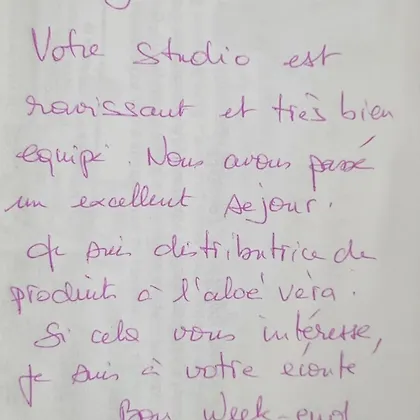 Votre studio est
ravissant et très bien
équipé. Nous avons passé
un excellent séjour.
Je suis distributrice de
produits à l'aloé véra.
Si cela vous intéresse,
je suis à votre écoute
Bon Week-end